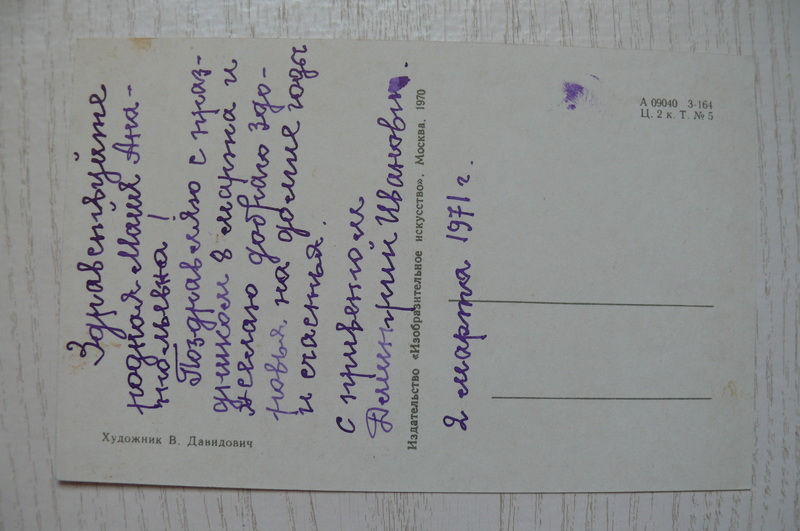 Здравствуйте
родная Майя Ана-
тольевна!
Поздравляю с праз-
дником 8 марта и
желаю доброго здо-
ровья на долгие годы
и счастья.
С приветом
Дмитрий Иванович.
2 марта 1971 г.
Художник В. Давидович
Издательство «Изобразительное искусство». Москва. 1970
А 09040 3-164
Ц. 2 к. Т. № 5